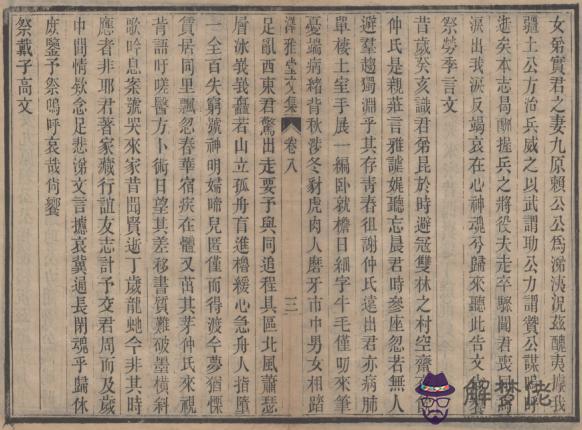 女弟實君之妻九原賴公公爲涕洟況茲醜夷擾我
疆土公方治兵威之以武謂助公力謂贊公謀嗚呼
逝矣本志曷酬握兵之將役夫走卒驟聞君喪
淚出我淚反竭哀在心神魂兮歸來聽此告文
祭勞季言文
昔歲癸亥識君弟昆於時避寇雙林之村空齋
仲氏是親莊言雅謔娓聽忘晨君時參座忽若無人
避羣趨獨淵乎其存青春徂謝仲氏遠出君亦病肺
單棲土室手展一編臥就檐日細字牛毛僅叨來筆
憂端病緒背秋涉冬豺虎肉人磨牙市中男女相蹈
足亂西東君驚出走要予與同追程具區北風蕭瑟
澤雅堂文集
卷八
三
層冰峩峩矗若山立孤舟首進櫓緩心急舟人指壁
一全百失窮號神明嬬啼兒匿僅而得渡今夢猶慄
賃居同里飄忽春華宿疾在體又茁其芽仲氏來視
昔語吁嗟醫方卜術日望其差移書質難破墨橫斜
歌吟息案號哭來家昔聞賢逝丁歲龍虵今非其時
應者非耶君著家藏行誼友志計予交君周而及歲
中間情款念足悲涕文言攄哀冀過長閉魂乎歸休
庶鑒予祭嗚呼哀哉尙饗
祭戴子高文
解夢佬